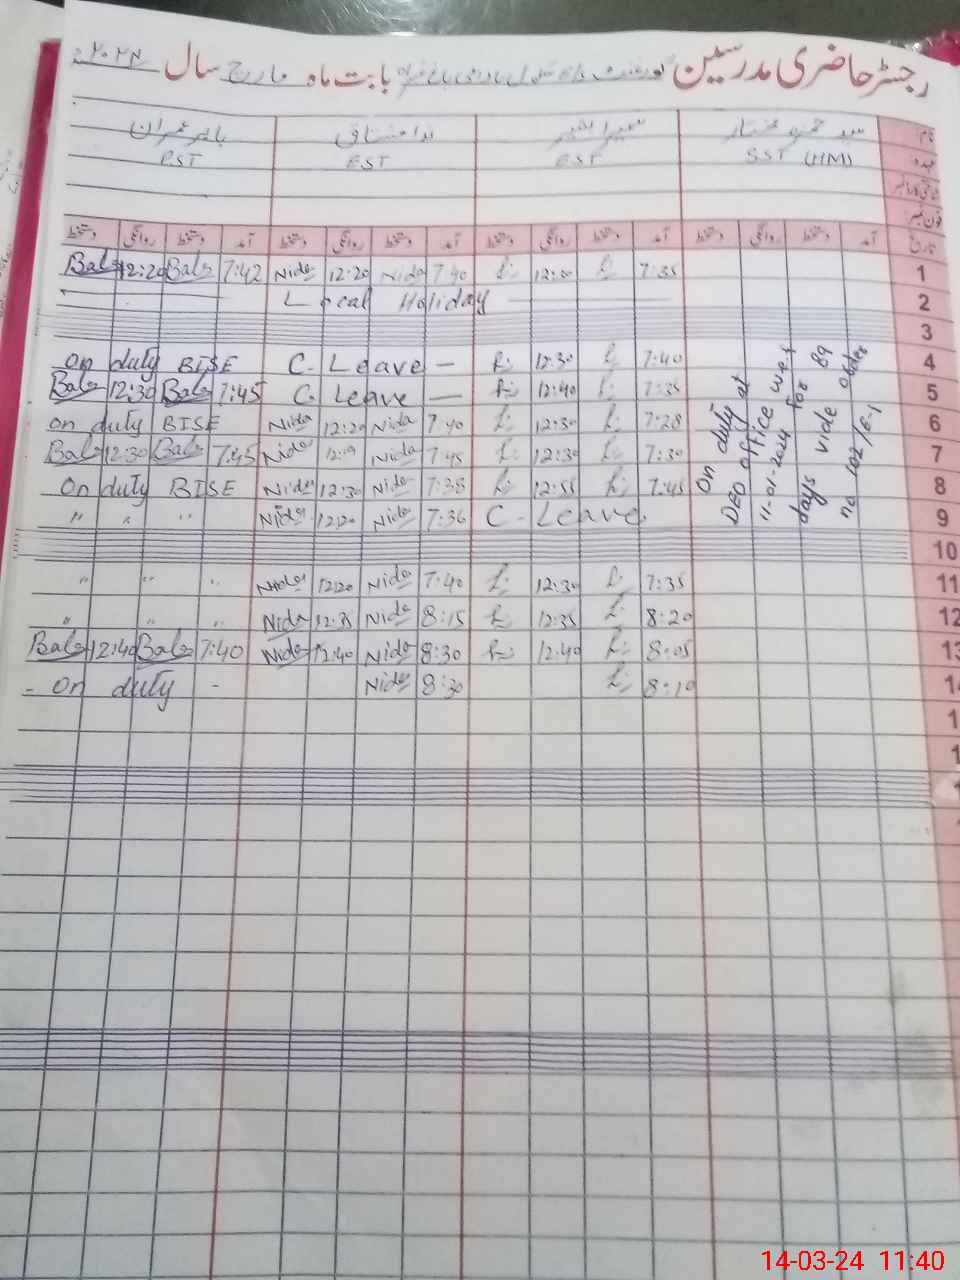 رجسٹر حاضری مدرسین گورنمنٹ بابت ماہ مارچ سال ۲۰۲۴ء
نام: سید حمزہ مختار سمیرا بشیر ندا مشتاق بابر عمران
عہدہ SST (HM) EST EST PST
فون نمبر:
تاریخ آمد دستخط روانگی دستخط آمد دستخط روانگی دستخط آمد دستخط روانگی دستخط آمد دستخط روانگی دستخط
Babr 12:20 Babr 7:42 Nida 12:20 Nida 7:40 12:30 7:35 1
Local Holiday 2
3
on duty BISE C. Leave — 12:30 7:40 4
Babr 12:30 Babr 7:45 C. Leave — 12:40 7:35 5
on duty BISE Nida 12:20 Nida 7:40 12:30 7:28 6
Babr 12:30 Babr 7:45 Nida 12:19 Nida 7:45 12:30 7:30 7
On duty BISE Nida 12:30 Nida 7:38 12:55 7:45 8
" " " Nida 12:20 Nida 7:36 C - Leave 9
On duty at
DEO office w.e.f
11-01-2024 for 89
days vide order
no 102/G.1
10
" " " Nida 12:20 Nida 7:40 12:30 7:35 11
" " " Nida 12:35 Nida 8:15 12:35 8:20 12
Babr 12:40 Babr 7:40 Nida 12:40 Nida 8:30 12:40 8:05 13
- On duty - Nida 8:30 8:10 14
14-03-24 11:40